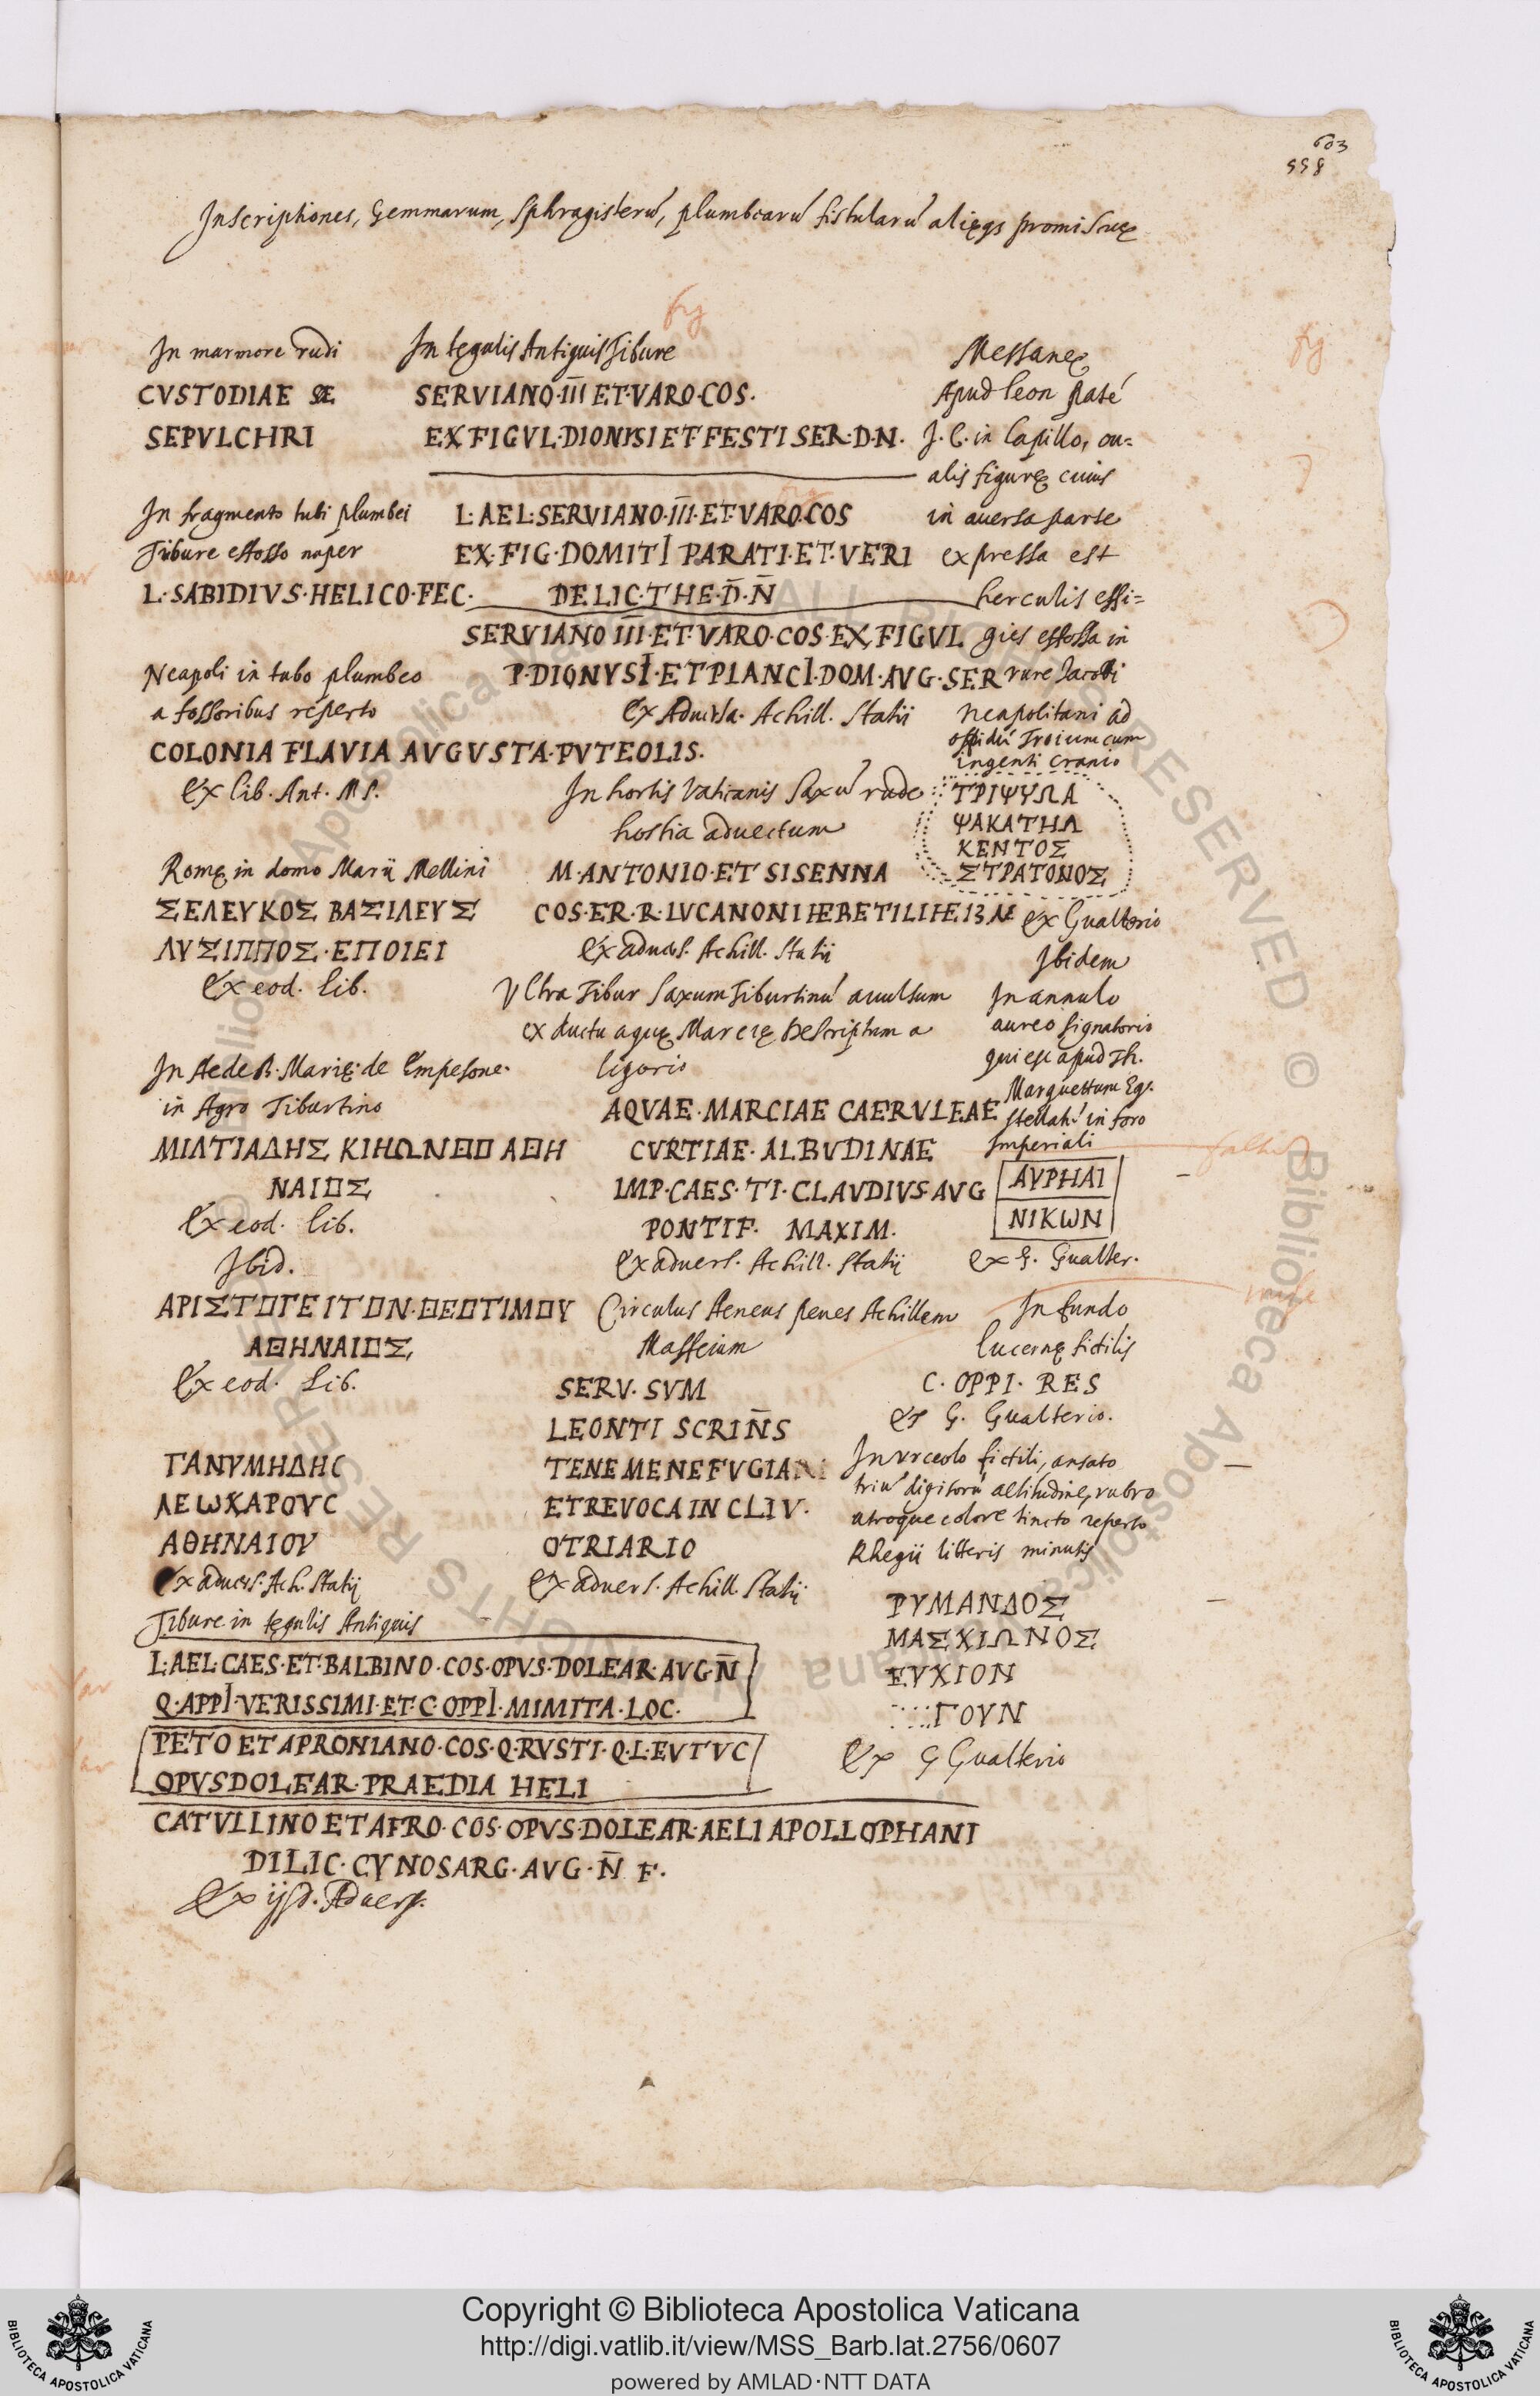 603
558
Inscriptiones, Gemmarum, Sphragisterú, plumbearú fistularú alięqs promiscuę
In marmore rudi
CVSTODIAE
SEPVLCHRI
In fragmento tubi plumbei
Tibure effosso nuper
L·SABIDIVS·HELICO·FEC·
Neapoli in tubo plumbeo
a fossoribus reperto
COLONIA FLAVIA AVGVSTA·PVTEOLIS·
Ex lib. Ant. MS.
Romę in domo Marii Mellini
ΣΕΛΕΥΚΟΣ ΒΑΣΙΛΕΥΣ
ΛΥΣΙΠΠΟΣ·ΕΠΟΙΕΙ
Ex eod. lib.
In Aede B. Marię de Empesone·
in Agro Tiburtino
ΜΙΛΤΙΑΔΗΣ ΚΙΗΩΝΘΟ ΑΘΗ
ΝΑΙΟΣ
Ex eod. lib.
Ibid.
ΑΡΙΣΤΟΓΕΙΤΟΝ·ΘΕΟΤΙΜΟΥ
ΑΘΗΝΑΙΟΣ
Ex eod. Lib.
ΓΑΝΥΜΗΔΗC
ΛΕωΧΑΡΟΥC
ΑΘΗΝΑΙΟΥ
Ex advers. Ach. Statij
Tibure in tegulis Antiquis
L·AEL·CAES·ET·BALBINO·COS·OPVS·DOLEAR·AVG·N̄
Q·APPI·VERISSIMI·ET·C·OPPI·MIMITA·LOC·
PETO ET APRONIANO·COS·Q·RVSTI·Q·L·EVTVC
OPVSDOLEAR·PRAEDIA HELI
CATVLLINO ET AFRO·COS·OPVS·DOLEAR·AELI APOLLOPHANI
DILIC·CYNOSARG·AVG·N̄ F·
Ex ijsd. Advers.
fig
In tegulis Antiquis Tibure
SERVIANO·III ET·VARO·COS·
EX FIGVL·DIONISI ET·FESTI SER·D·N·
L·AEL·SERVIANO·III·ET·VARO·COS
EX·FIG·DOMITI PARATI·ET·VERI
DELIC·THE·D̄·N̄
SERVIANO III·ET·VARO·COS·EX FIGVL
P·DIONYSI·ET PLANCI·DOM·AVG·SER
Ex Adversa. Achill. Statii
In hortis Vaticanis Saxú rude
hostia advectum
M·ANTONIO·ET SISENNA
Ex advers. Achill. Statij
Vltra Tibur Saxum Tiburtinú avulsum
ex ductu aquę Marcię Descriptum a
ligorio
AQVAE·MARCIAE CAERVLEAE
CVRTIAE·ALBVDINAE
IMP·CAES·TI·CLAVDIVS AVG
PONTIF· MAXIM·
Ex advers. Achill. Statij
Circulus Aeneus penes Achillem
Maffeium
SERV·SVM
LEONTI SCRIN̄S
TENEMENEFVGIA
ET REVOCA IN CLIV·
OTRIARIO
Ex advers. Achill. Statij
fig
Messanę
Apud leon paté
I. C. in Capillo, ou=
alis figurę cuius
in aversa parte
expressa est
herculis effi=
gies effossa in
rure Jacobi
Neapolitani ad
oppidú Troiium cum
ingenti cranio
ΤΡΙΨΥΩΑ
ΨΑΚΑΤΗΛ
ΚΕΝΤΟΣ
ΣΤΡΑΤΟΝΟΣ
ex Gualterio
Ibidem
In annulo
aureo signatorio
qui est apud Th.
Marquettum Eq.
in foro
Imperiali
ΑΥΡΗΛΙ
ΝΙΚωΝ
ex G. Gualter.
In fundo
lucernę fictilis
C· OPPI· RES
ex G. Gualterio.
In vrceolo fictili, ansato
triú digitorú altitudine, rubro
atroque colore tincto reperto
Rhegii litteris minutis
ΡΥΜΑΝΔΟΣ
ΜΑΣΧΙΩΝΟΣ
ΕΥΧΙΟΝ
::::ΓΟΥΝ
Ex G Gualterio
Copyright © Biblioteca Apostolica Vaticana
http://digi.vatlib.it/view/MSS_Barb.lat.2756/0607
powered by AMLAD·NTT DATA
BIBLIOTECA APOSTOLICA VATICANA
BIBLIOTECA APOSTOLICA VATICANA